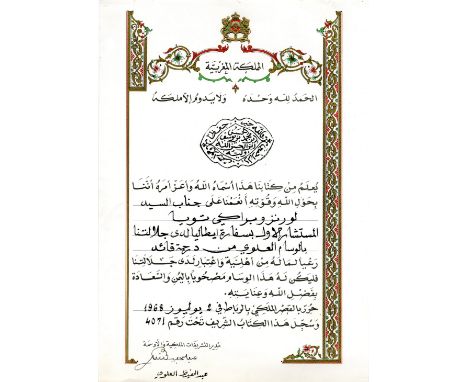 المملكة المغربية
الحمد لله وحده ولا يدوم إلا ملكه
يعلم من كتابنا هذا أسماه الله وأعز أمره أننا
بحول الله وقوته أنعمنا على جناب السيد
لورنزو براكي توبا
المستشار الأول بسفارة إيطاليا لدى جلالتنا
بالوسام العلوي من درجة قائد
رعيا لما له من أهلية واعتبار لدى جلالتنا
فليكن له هذا الوسام مصحوبا باليمن والسعادة
بفضل الله وعنايته.
حرر بالقصر الملكي بالرباط في 2 يوليوز 1968
وسجل هذا الكتاب الشريف تحت رقم 4071
مدير التشريفات الملكية والأوسمة
عبد الحفيظ العلوي